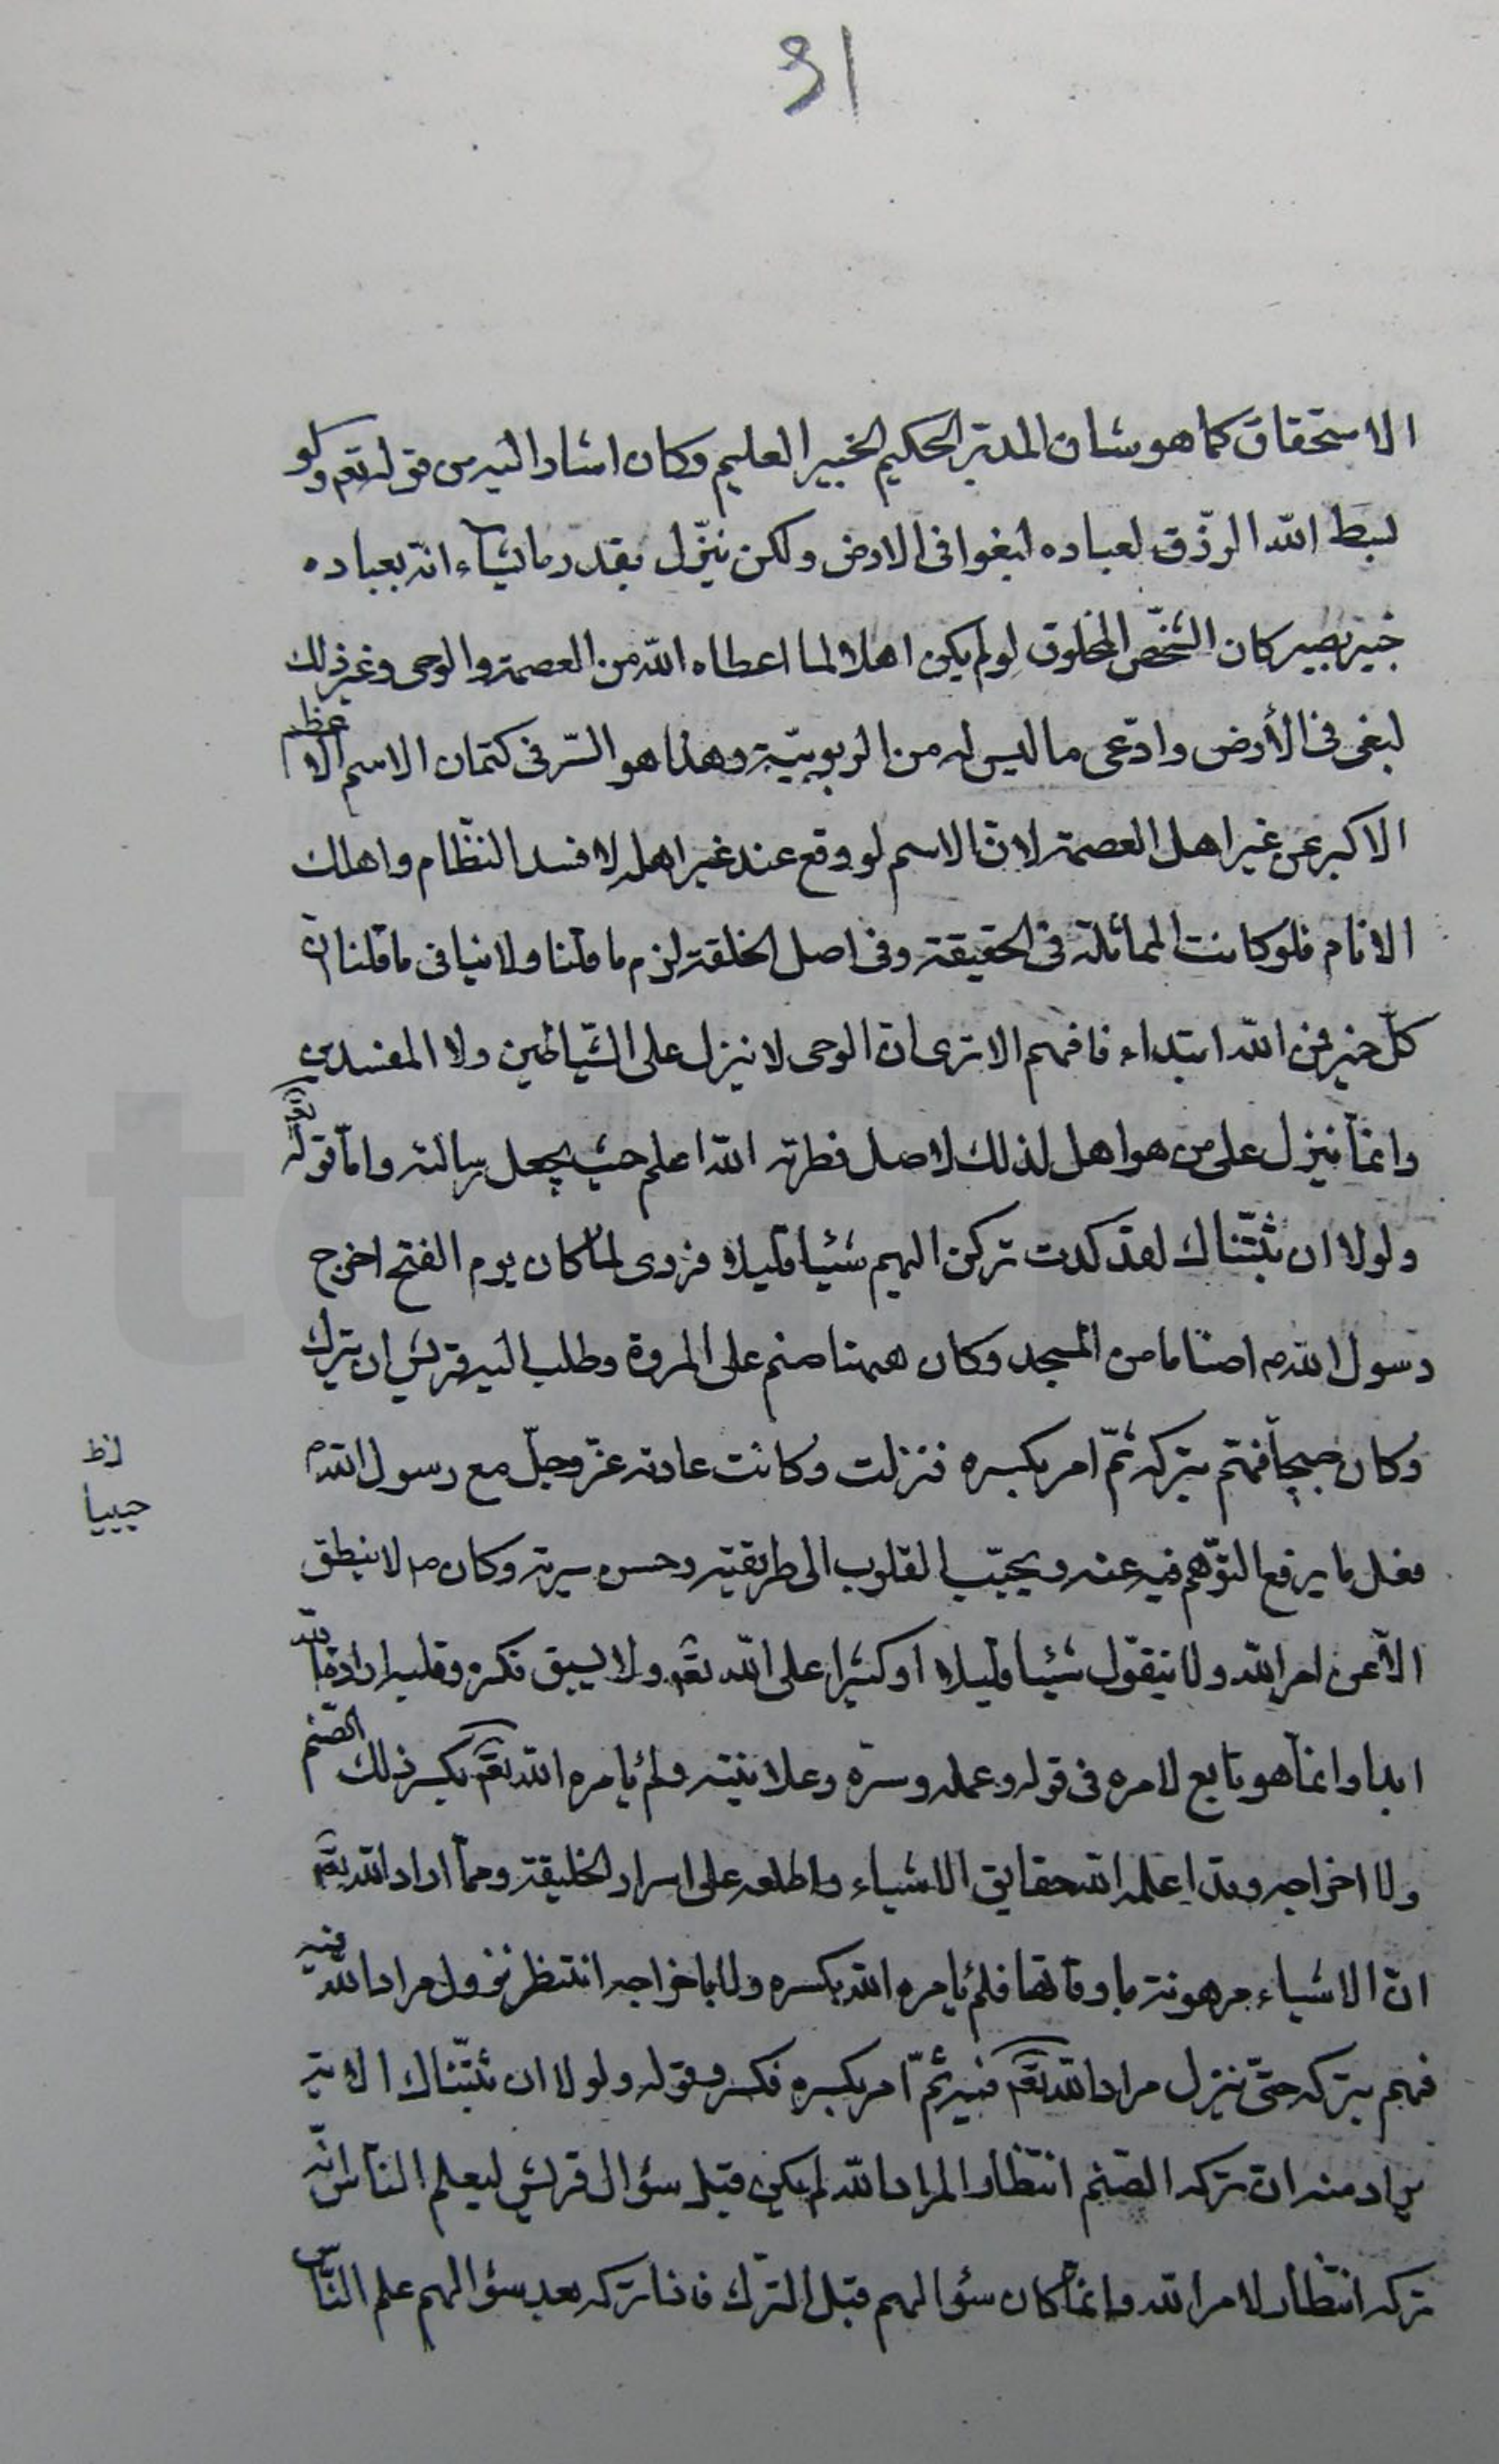 31
الاستحقاق كما هو شان المدبّر الحكيم الخبير العليم وكان اشار اليه من قوله تعم ولو
بسط الله الرزق لعباده لبغوا فى الارض ولكن ينزّل بقدر ما يشاء انّه بعباده
خبير بصير كان الشخص المخلوق لو لم يكن اهلا لما اعطاه الله من العصمة والوحى وغير ذلك
لبغى فى الأرض وادّعى ما ليس له من الربوبيّة وهذا هو السّر فى كتمان الاسم الاعظم
الاكبر عن غير اهل العصمة لانّ الاسم لو وقع عند غير اهله لافسد النظّام واهلك
الانام فلو كانت المماثلة فى الحقيقة وفى اصل الخلقة لزم ما قلنا ولا ينافى ما قلنا انّ
كلّ خير من الله ابتداء فافهم الا ترى انّ الوحى لا ينزل على الشّياطين ولا المفسدين
وانّما ينزل على من هو اهل لذلك لاصل فطرته الله اعلم حيث يجعل رسالته وامّا قوله تعالى
ولولا ان ثبّتناك لقد كدت تركن اليهم شيئا قليلا فروى لمّا كان يوم الفتح اخرج
رسول الله ص اصناما من المسجد وكان ههنا صنم على المروة وطلب اليه قريش ان يترك
وكان فهمّ بتركه ثمّ امر بكسره فنزلت وكانت عادته عزّ وجلّ مع رسول الله ص
لظ
حييا
فعل ما يرفع التوّهم فيه عنه ويحبّب القلوب الى طريقته وحسن سيرته وكان ص لا ينطق
الّا عن امر الله ولا يتقوّل شيئا قليلا او كثيرا على الله تعم ولا يسبق فكره وقلبه ارادة الله
ابدا وانّما هو تابع لامره فى قوله وعمله وسرّه وعلانيته ولم يامره الله تعم بكسر ذلك الصّنم
ولا اخراجه وقد اعلمه الله حقايق الاشياء واطلعه على اسرار الخليقة وممّا اراد الله تعم
انّ الاشياء مرهونة باوقاتها فلم يامره الله بكسره ولا باخراجه انتظر نزول مراد الله فيه
فهم بتركه حتّى ينزل مراد الله تعم فيه ثمّ امر بكسره فكسر وقوله ولولا ان ثبّتناك الاية
يراد منه انّ تركه الصّنم انتظار المراد الله لم يكن قبل سؤال قريش ليعلم النّاس انّه
تركه انتظار لامر الله وانّما كان سؤالهم قبل الترك فاذا تركه بعد سؤالهم علم النّاس